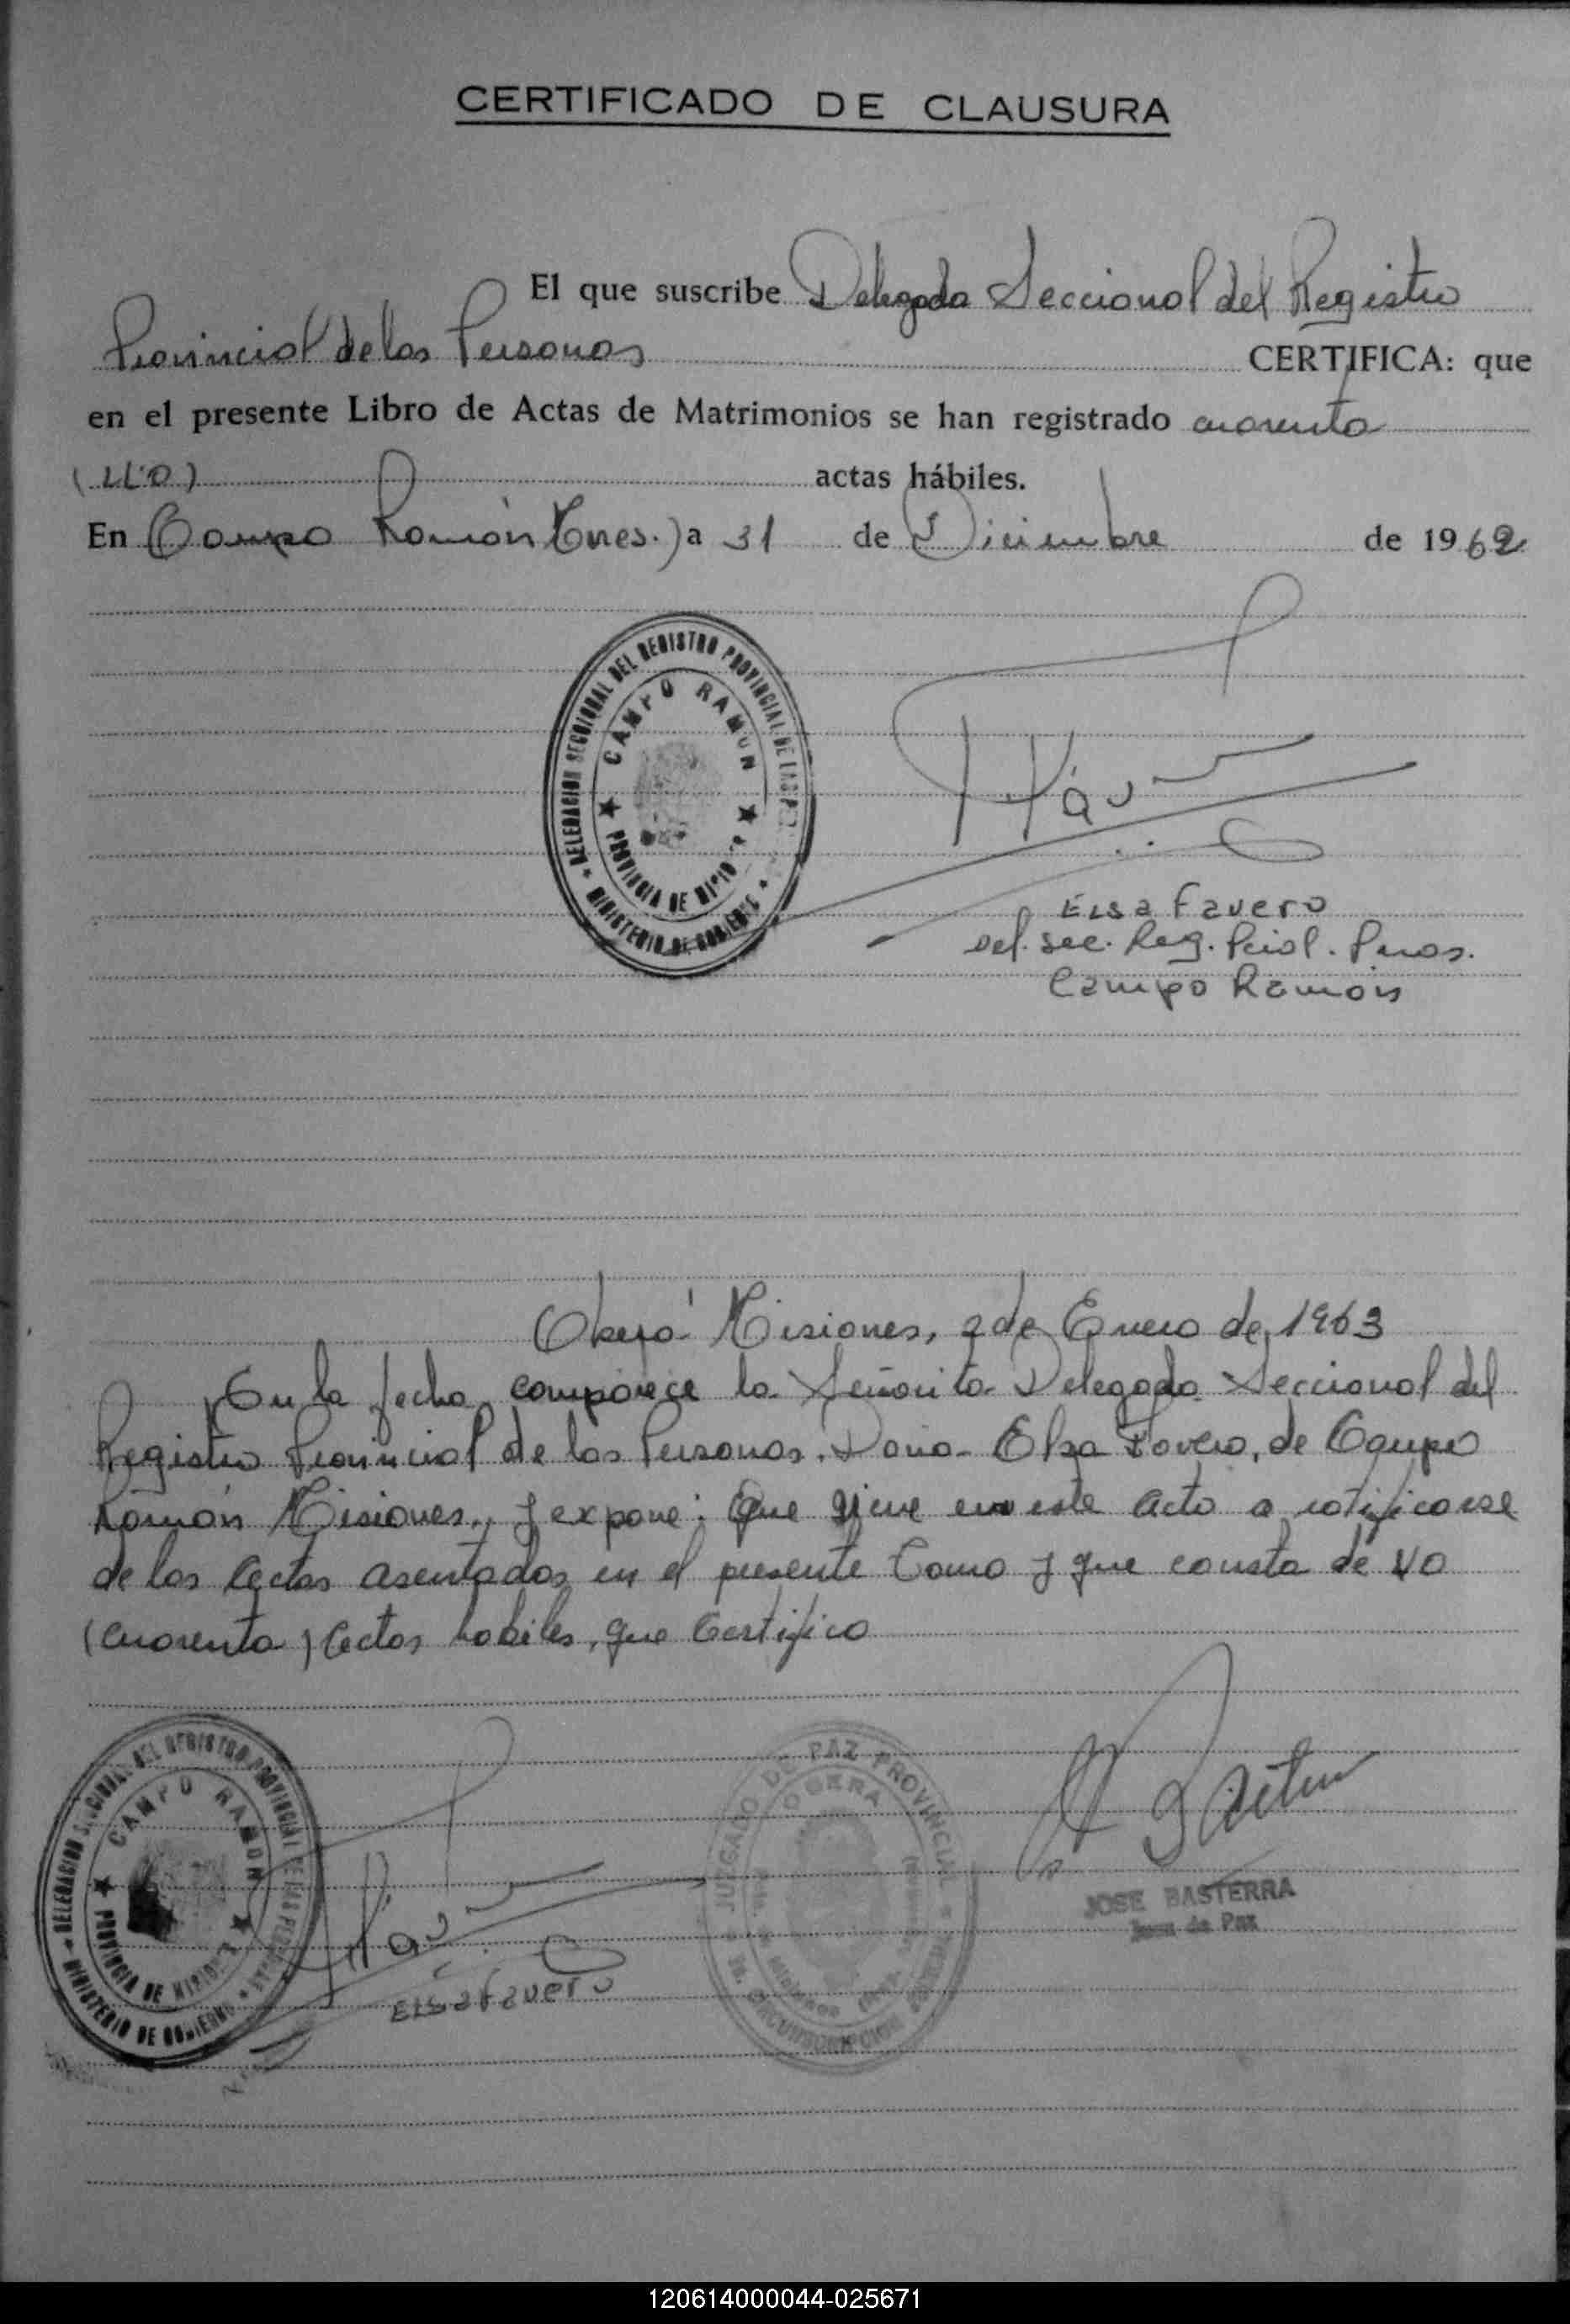 CERTIFICADO DE CLAUSURA
El que suscribe Delegada Seccional del Registro
Provincial de las Personas CERTIFICA: que
en el presente Libro de Actas de Matrimonios se han registrado cuarenta
(40) actas hábiles.
En Campo Ramón (Mnes.) a 31 de Diciembre de 1962
DELEGACION SECCIONAL DEL REGISTRO PROVINCIAL DE LAS
MINISTERIO DE GOBIERNO
CAMPO RAMON
PROVINCIA DE
Elsa Favero
Del. Sec. Reg. Pcial. Pnas.
Campo Ramón
Oberá Misiones, 2 de Enero de 1963
En la fecha comparece la Señorita Delegada Seccional del
Registro Provincial de las Personas, Doña Elsa Favero, de Campo
Ramón Misiones, y expone: Que viene en este acto a ratificarse
de las actas asentadas en el presente Tomo y que consta de 40
(cuarenta) actas habiles, que Certifico
DELEGACION SECCIONAL DEL REGISTRO PROVINCIAL DE LAS
MINISTERIO DE GOBIERNO
CAMPO RAMON
PROVINCIA DE MISIONES
Elsa Favero
JUZGADO DE PAZ PROVINCIAL
OBERA
CIRCUNSCRIPCION JUDICIAL
JOSE BASTERRA
Juez de Paz
120614000044-025671